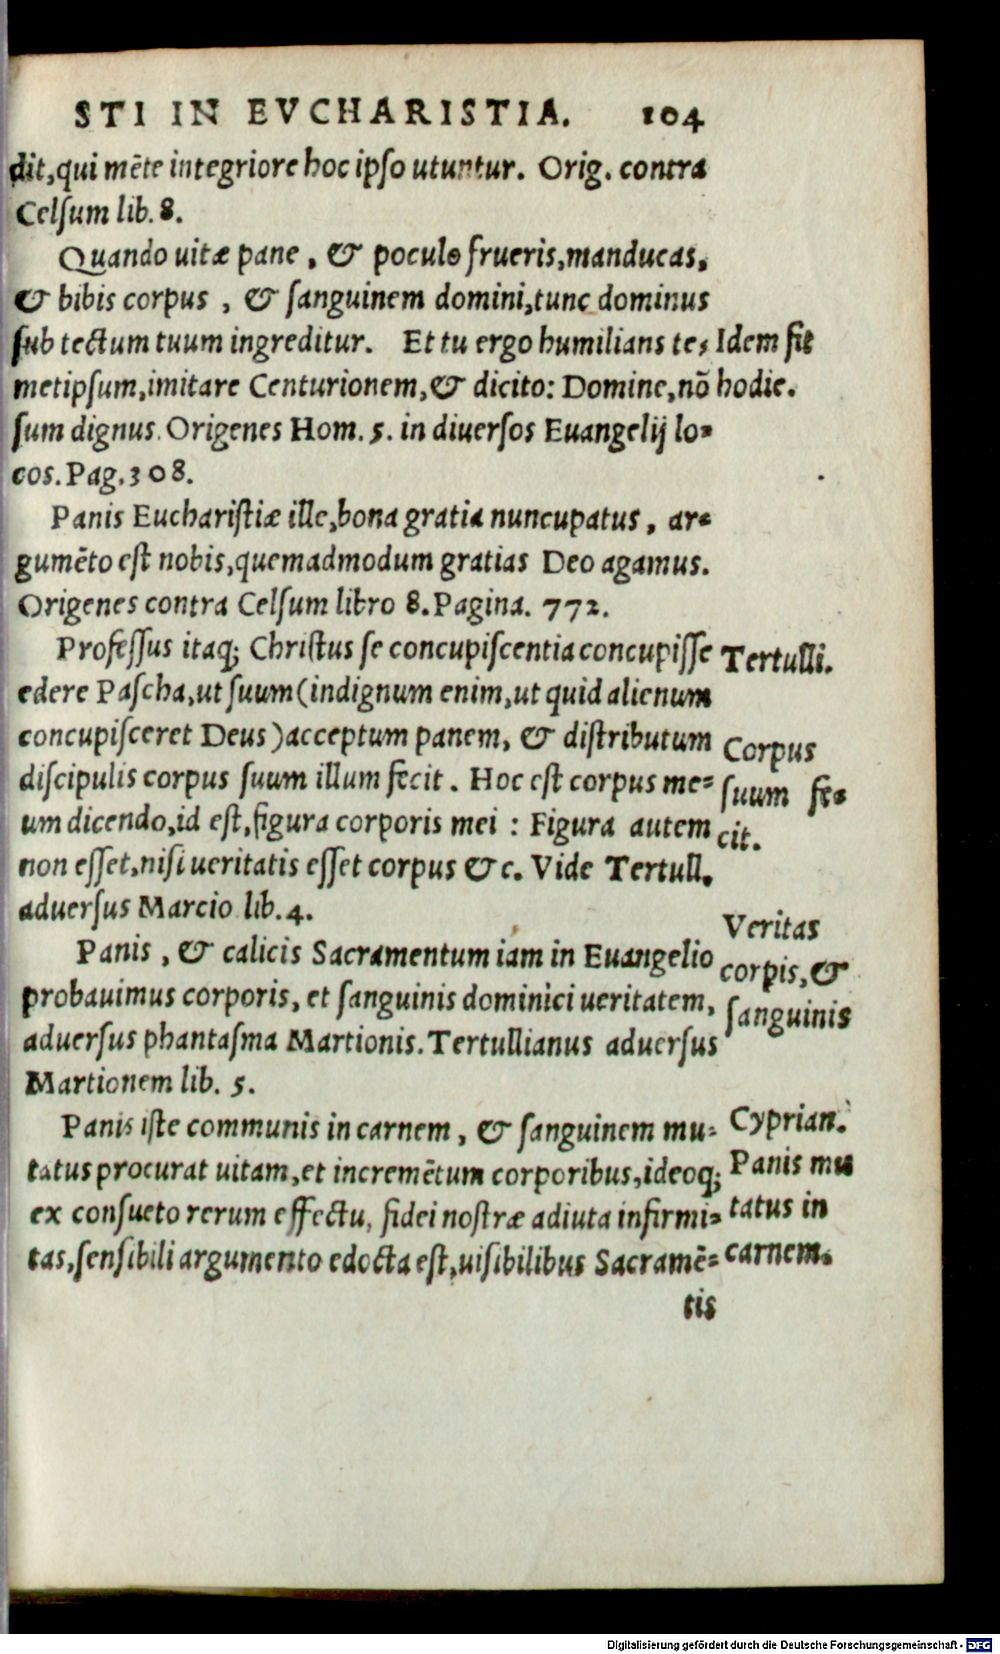 STI IN EVCHARISTIA. 104
dit, qui mẽte integriore hoc ipso utuntur. Orig. contra
Celsum lib. 8.
Quando uitæ pane, & poculo frueris, manducas,
& bibis corpus, & sanguinem domini, tunc dominus
sub tectum tuum ingreditur. Et tu ergo humilians te-
metipsum, imitare Centurionem, & dicito: Domine, nõ
sum dignus. Origenes Hom. 5. in diuersos Euangelij lo-
cos. Pag. 308.
Idem fit
hodie.
Panis Eucharistiæ ille, bona gratia nuncupatus, ar-
gumẽto est nobis, quemadmodum gratias Deo agamus.
Origenes contra Celsum libro 8. Pagina. 772.
Professus itaq; Christus se concupiscentia concupisse
edere Pascha, ut suum (indignum enim, ut quid alienum
concupisceret Deus) acceptum panem, & distributum
discipulis corpus suum illum fecit. Hoc est corpus me-
um dicendo, id est, figura corporis mei : Figura autem
non esset, nisi ueritatis esset corpus & c. Vide Tertull.
aduersus Marcio lib. 4.
Tertulli.
Corpus
suum fe-
cit.
Panis, & calicis Sacramentum iam in Euangelio
probauimus corporis, et sanguinis dominici ueritatem,
aduersus phantasma Martionis. Tertullianus aduersus
Martionem lib. 5.
Veritas
corpis, &
sanguinis
Panis iste communis in carnem, & sanguinem mu-
tatus procurat uitam, et incremẽtum corporibus, ideoq;
ex consueto rerum effectu, fidei nostræ adiuta infirmi-
tas, sensibili argumento edocta est, uisibilibus Sacramẽ-
tis
Cyprian.
Panis mu
tatus in
carnem.
Digitalisierung gefördert durch die Deutsche Forschungsgemeinschaft - DFG